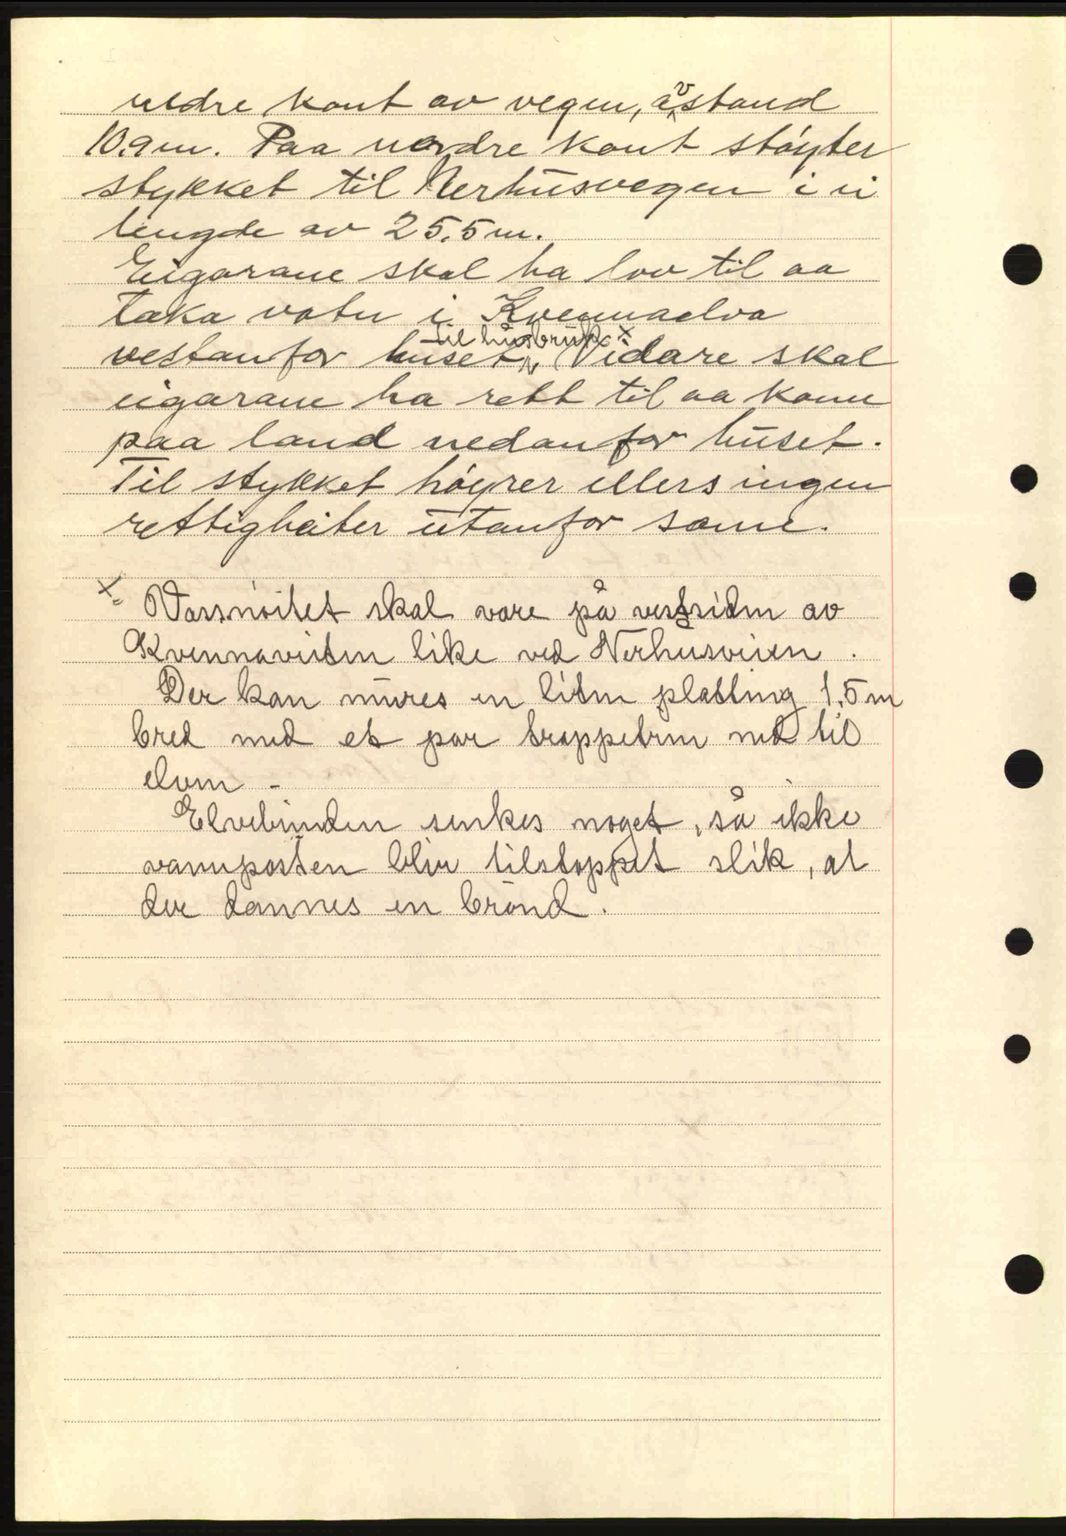 nedre kant av vegen, avstand
10.9 m. Paa nordre kant støyter
stykket til Nerhusvegen i ei
lengde av 25.5 m.
Eigarane skal ha lov til aa
taka vatn i Kvennaelva
vestanfor huset, til husbruk x Vidare skal
eigarane ha rett til aa kome
paa land nedanfor huset.
Til stykket høyrer ellers ingen
rettigheiter utanfor same.
x Vassnøitet skal være på vestsiden av
Kvennaveiten like ved Nerhusveien.
Der kan mures en liten platting 1,5 m
bred med et par trappetrin ned til
elven -
Elvebunden senkes noget, så ikke
vannposten blir tilstoppet slik, at
der dannes en brønd.